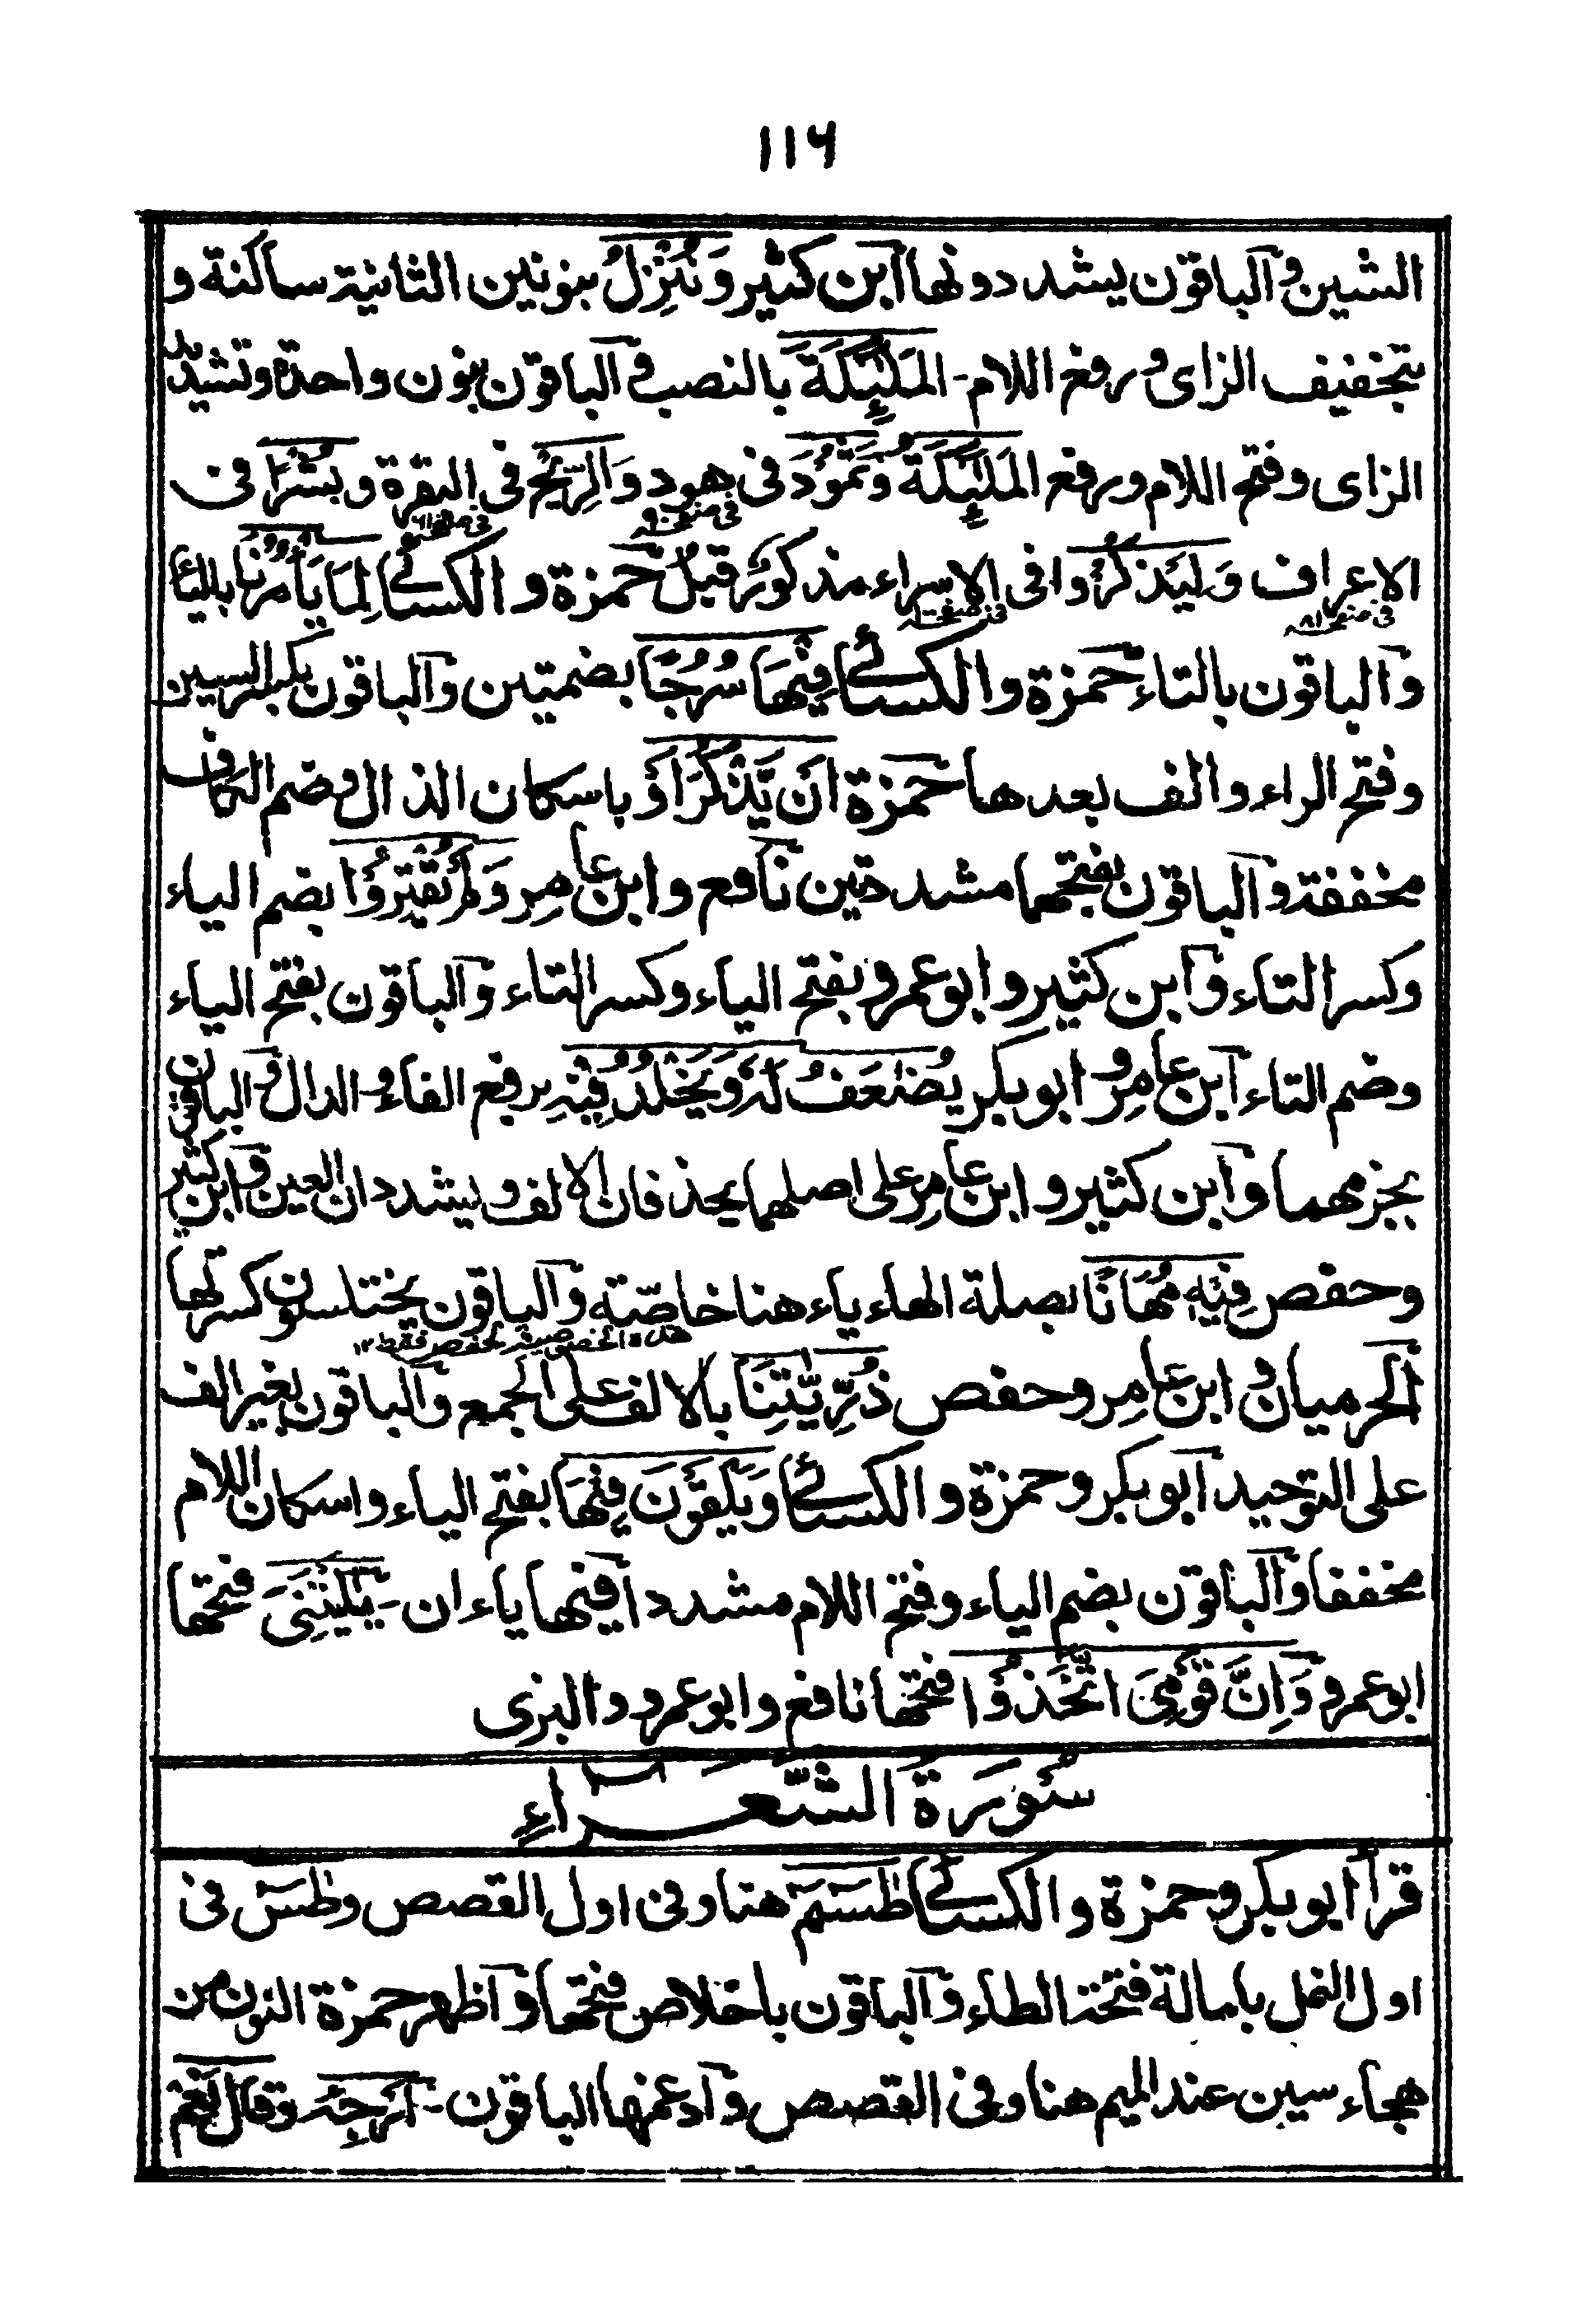 ١١٦
الشين و الباقون يشددونها ابن كثير وَنُنْزِلُ بنونين الثانية ساكنة و
بتخفيف الزاى و رفع اللام - المَلٰئِكَةَ بالنصب و الباقون بنون واحدة و تشديد
الزاى و فتح اللام و رفع المَلٰئِكَةُ وَثَمُوْدَ فى هود وَالرِّيٰحَ فى البقرة و بُشْرًا فى
فى صفحه ٩
الاعراف وَلِيَذَّكَّرُوا فى الاسراء مذكور قبل حمزة و الكسائى لِمَا يَأْمُرُنَا بالياء
فى صفحه ٨١
و الباقون بالتاء حمزة و الكسائى فِيْهَا سُرُجًا بضمتين و الباقون بكسر السين
و فتح الراء و الف بعدها حمزة اَنْ يَّذْكُرَ اَوْ باسكان الذال و ضم الكاف
مخففة و الباقون بفتحهما مشددتين نافع و ابن عامر وَلَمْ يُقْتِرُوْا بضم الياء
و كسر التاء و ابن كثير و ابو عمرو بفتح الياء و كسر التاء و الباقون بفتح الياء
و ضم التاء ابن عامر و ابو بكر يُضٰعَفُ لَهُ وَيَخْلُدُ فِيْهِ برفع الفاء و الدال و الباقون
بجزمهما و ابن كثير و ابن عامر على اصلهما يحذفان الالف و يشددان العين و ابن كثير
و حفص فِيْهٖ مُهَانًا بصلة الهاء ياء هنا خاصّة و الباقون يختلسون كسرتها
هذه الخصوصية لحفص فقط ١٢
الحرميان و ابن عامر و حفص ذُرِّيّٰتِنَا بالالف على الجمع و الباقون بغير الف
على التوحيد ابو بكر و حمزة و الكسائى وَيَلْقَوْنَ فِيْهَا بفتح الياء و اسكان اللام
مخففا و الباقون بضم الياء و فتح اللام مشددا فيها ياء ان - يٰلَيْتَنِىَ فتحها
ابو عمرو وَاِنَّ قَوْمِىَ اتَّخَذُوْا فتحها نافع و ابو عمرو و البزى
سُوْرَةُ الشُّعَرَاءِ
قرأ ابو بكر و حمزة و الكسائى طٰسٓمٓ هنا و فى اول القصص و طٰسٓ فى
اول النمل بامالة فتحة الطاء و الباقون باخلاص فتحها و اظهر حمزة النون من
هجاء سين عند الميم هنا و فى القصص و ادغمها الباقون - اَرْجِهْ و قال نَعَمْ